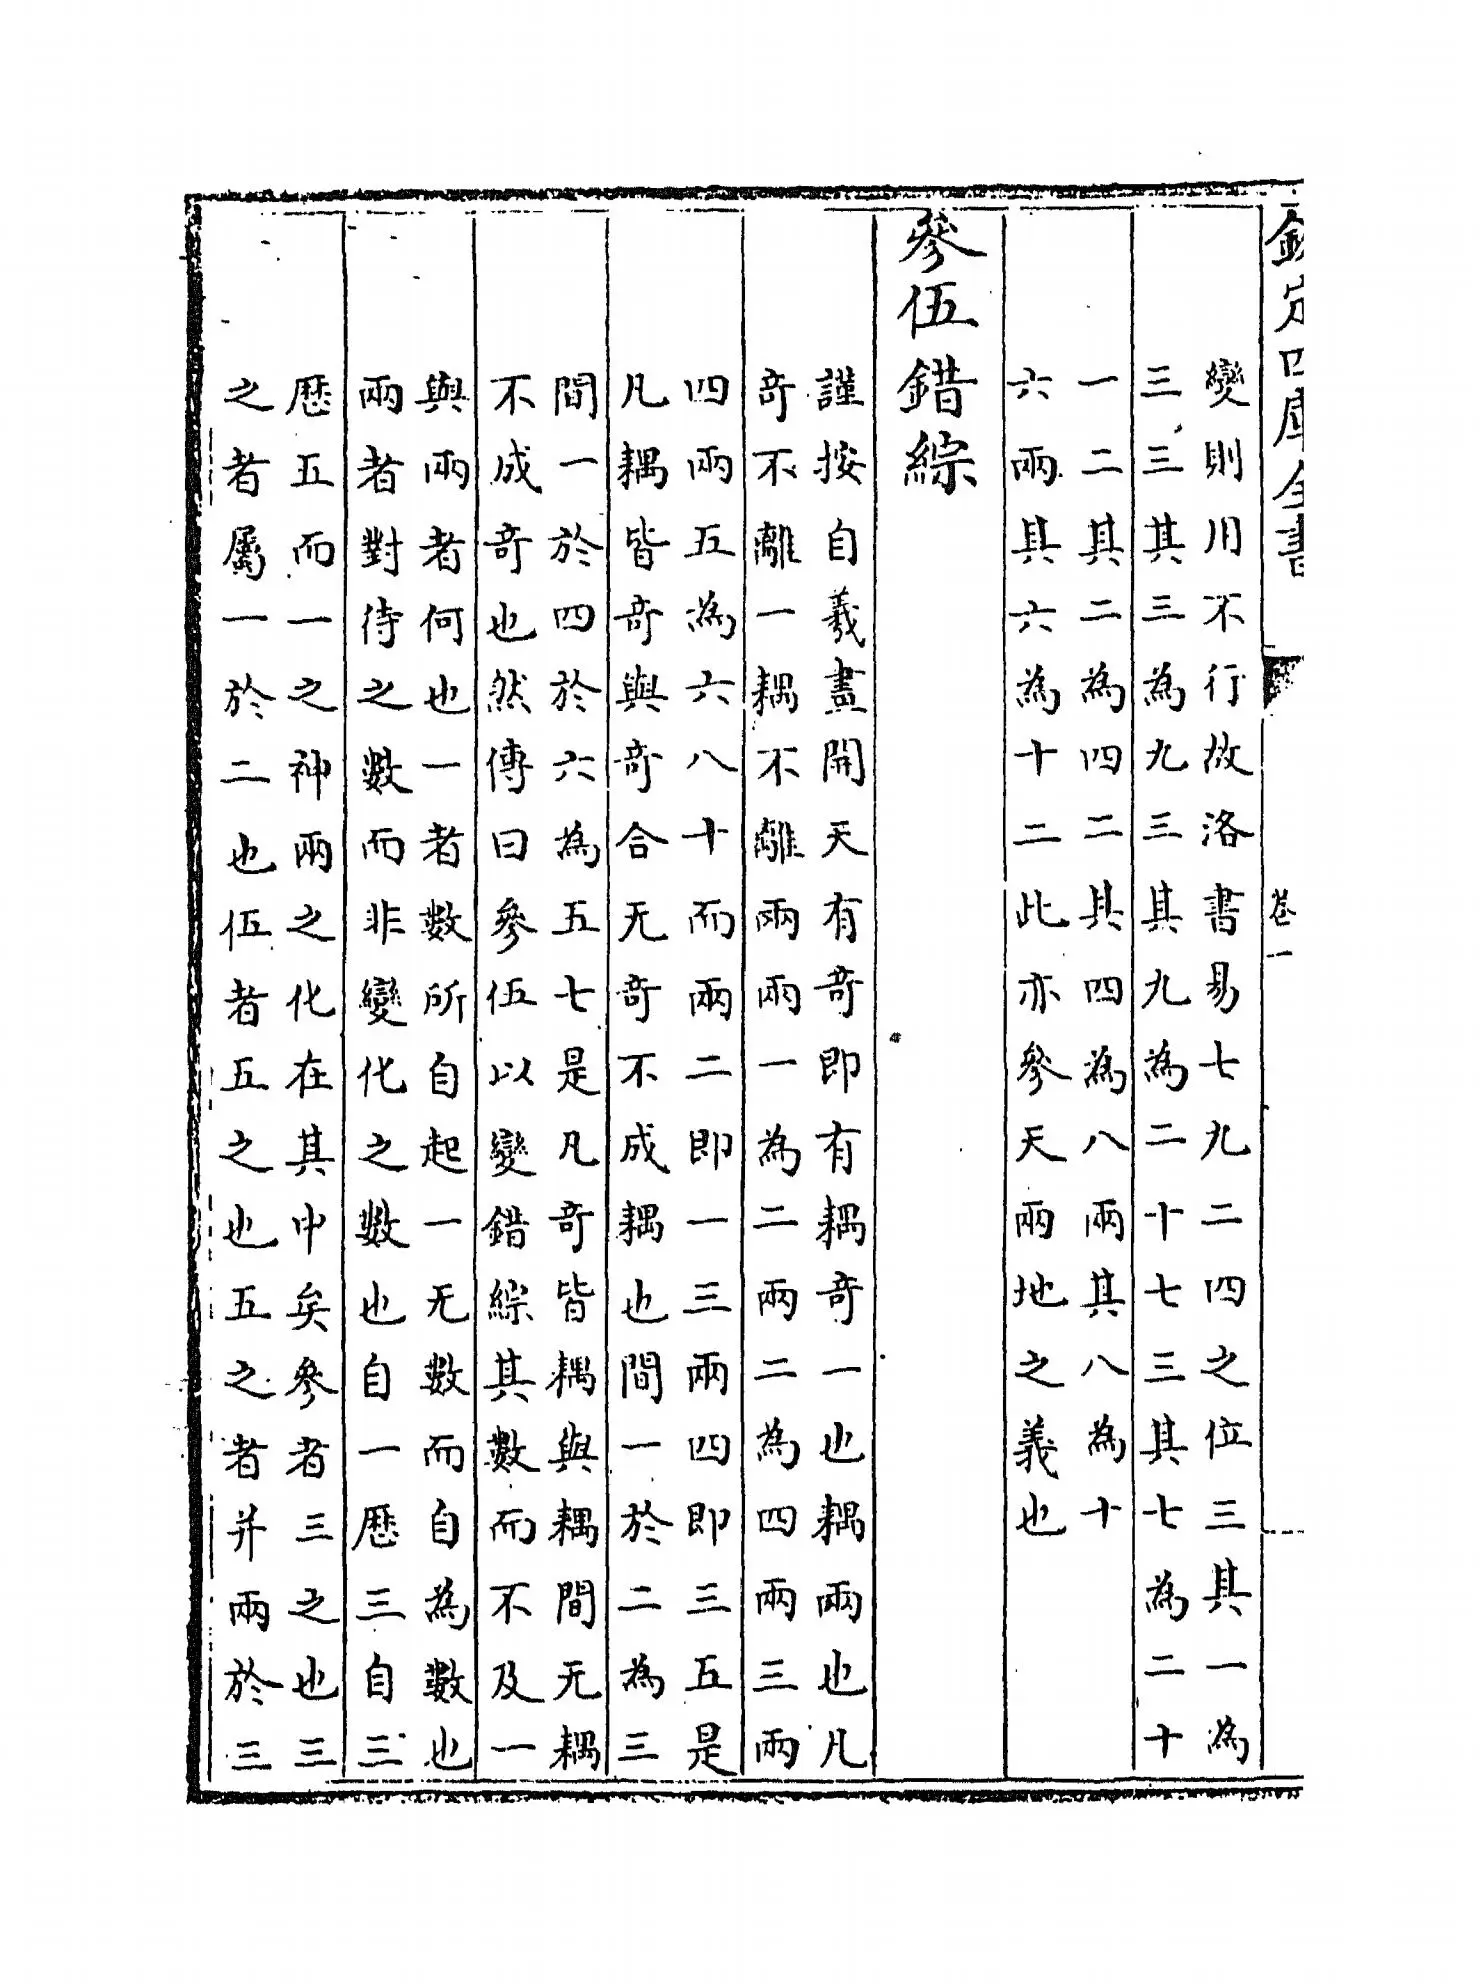 欽定四庫全書
卷一
變則用不行故洛書易七九二四之位三其一為
三三其三為九三其九為二十七三其七為二十
一二其二為四二其四為八兩其八為十
六兩其六為十二此亦參天兩地之義也
參伍錯綜
謹按自羲畫開天有奇即有耦奇一也耦兩也凡
奇不離一耦不離兩兩一為二兩二為四兩三兩
四兩五為六八十而兩二即一三兩四即三五是
凡耦皆奇與奇合无奇不成耦也間一於二為三
間一於四於六為五七是凡奇皆耦與耦間无耦
不成奇也然傳曰參伍以變錯綜其數而不及一
與兩者何也一者數所自起一无數而自為數也
兩者對待之數而非變化之數也自一歷三自三
歷五而一之神兩之化在其中矣參者三之也三
之者屬一於二也伍者五之也五之者并兩於三